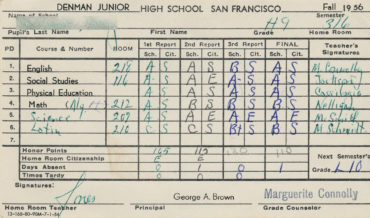 DENMAN JUNIOR HIGH SCHOOL SAN FRANCISCO Fall 1956
Name of School Semester
H9 316
Pupil's Last Name First Name Grade Home Room
PD Course & Number ROOM 1st Report 2nd Report 3rd Report FINAL Teacher's Signatures
Sch. Cit. Sch. Cit. Sch. Cit. Sch. Cit.
1. English 218 A S A S B S A S M. Connolly
2. Social Studies 116 A S A E A S A S
3. Physical Education A S A S A S A S
4. Math (Alg H) 212 A S B S B S B S
5. Science 207 A S A E A E A E M. Smith
6. Latin 210 C S C S B+ S B S M Schmidt
7.
Honor Points 105 115 120 110
Home Room Citizenship E E
Days Absent 0 1 0 1 Next Semester's
Times Tardy 0 0 0 0 Grade L10
Signatures:
Jones George A. Brown Marguerite Connolly
Home Room Teacher Principal Grade Counselor